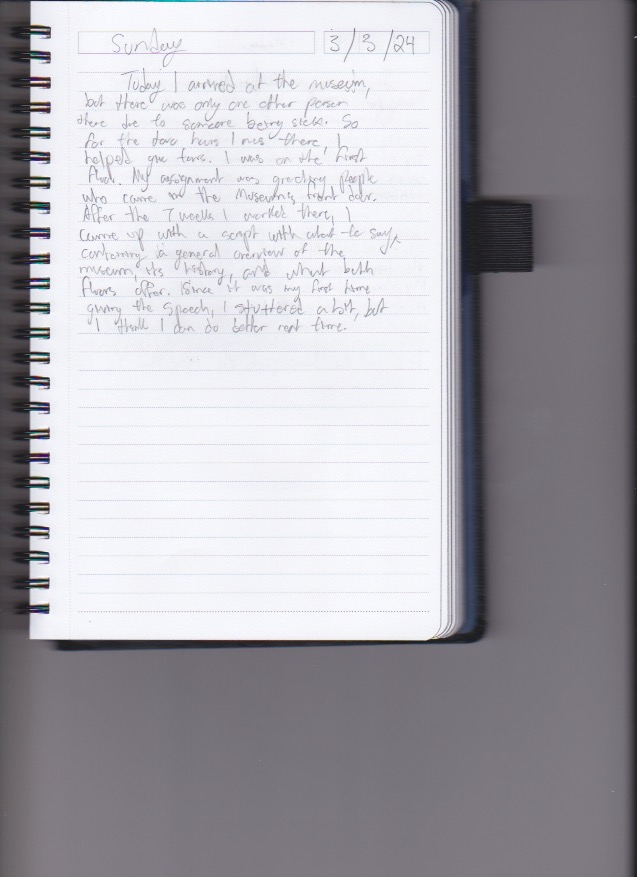 Sunday
3/3/24
Today I arrived at the museum,
but there was only one other person
there due to someone being sick. So
for the hours I was there, I
helped give tours. I was on the first
floor. My assignment was greeting people
who came in the museum's front door.
After the 7 weeks I worked there, I
came up with a script with what to say,
containing a general overview of the
museum, its history, and what both
floors offer. Since it was my first time
giving the speech, I stuttered a bit, but
I think I can do better next time.